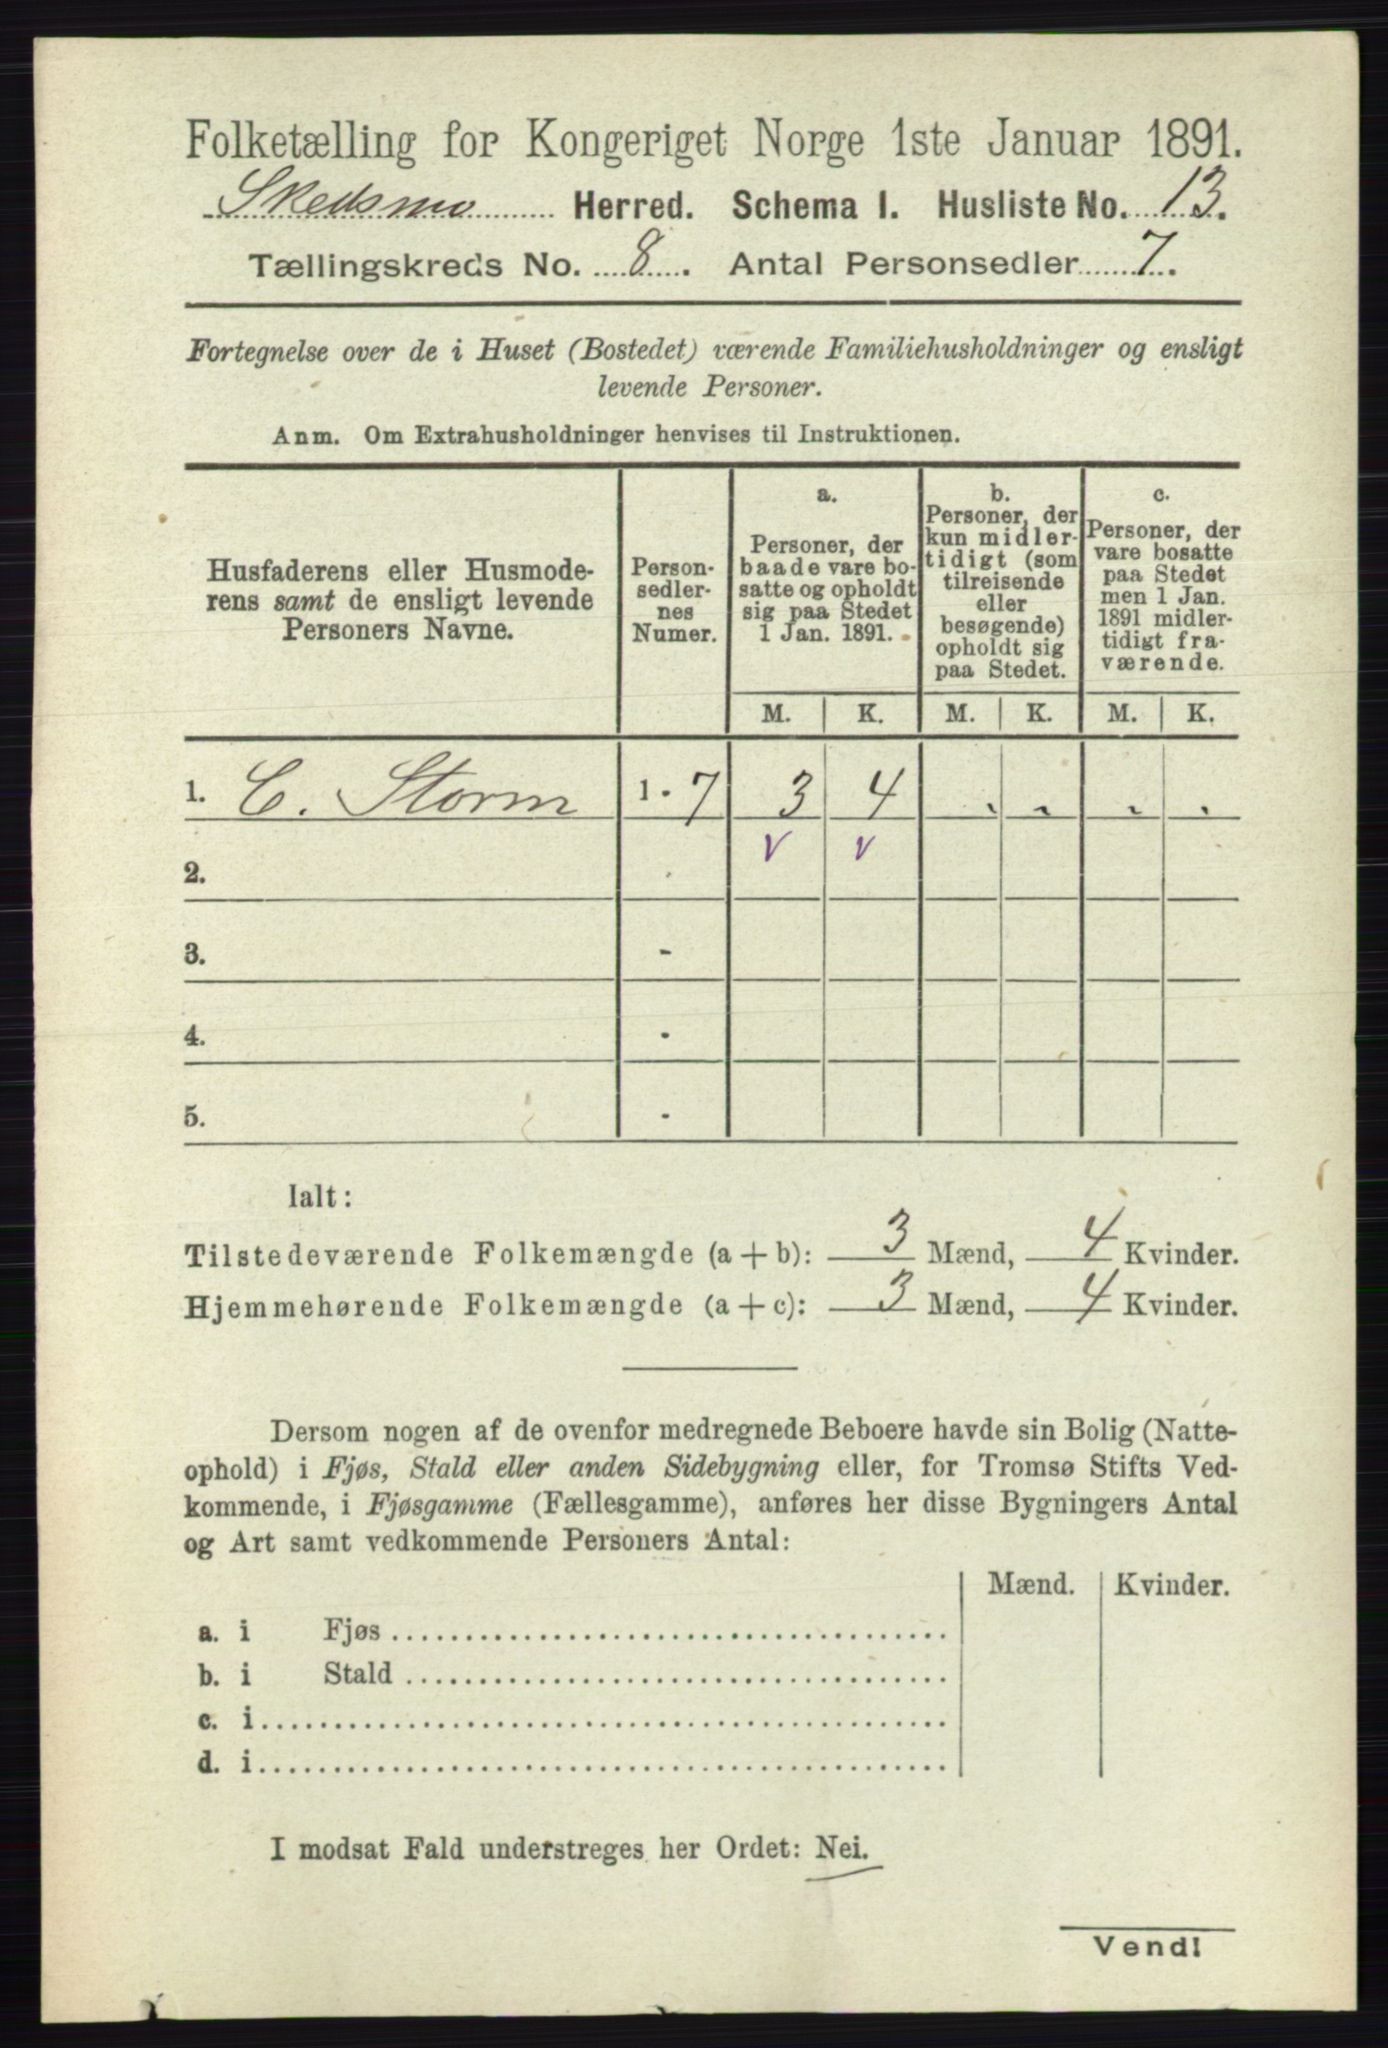 Folketælling for Kongeriget Norge 1ste Januar 1891.
Skedsmo Herred. Schema I. Husliste No. 13.
Tællingskreds No. 8. Antal Personsedler 7.
Fortegnelse over de i Huset (Bostedet) værende Familiehusholdninger og ensligt
levende Personer.
Anm. Om Extrahusholdninger henvises til Instruktionen.
Husfaderens eller Husmode-
rens samt de ensligt levende
Personers Navne.
Person-
sedler-
nes
Numer.
a.
Personer, der
baade vare bo-
satte og opholdt
sig paa Stedet
1 Jan. 1891.
b.
Personer, der
kun midler-
tidigt (som
tilreisende
eller
besøgende)
opholdt sig
paa Stedet.
c.
Personer, der
vare bosatte
paa Stedet
men 1 Jan.
1891 midler-
tidigt fra-
værende.
M. K. M. K. M. K.
1. C. Storm 1 - 7 3 4 . . . .
2. v v
3. -
4. -
5. -
Ialt:
Tilstedeværende Folkemængde (a + b): 3 Mænd, 4 Kvinder.
Hjemmehørende Folkemængde (a + c): 3 Mænd, 4 Kvinder.
Dersom nogen af de ovenfor medregnede Beboere havde sin Bolig (Natte-
ophold) i Fjøs, Stald eller anden Sidebygning eller, for Tromsø Stifts Ved-
kommende, i Fjøsgamme (Fællesgamme), anføres her disse Bygningers Antal
og Art samt vedkommende Personers Antal:
Mænd. Kvinder.
a. i Fjøs
b. i Stald
c. i
d. i
I modsat Fald understreges her Ordet: Nei.
Vend!